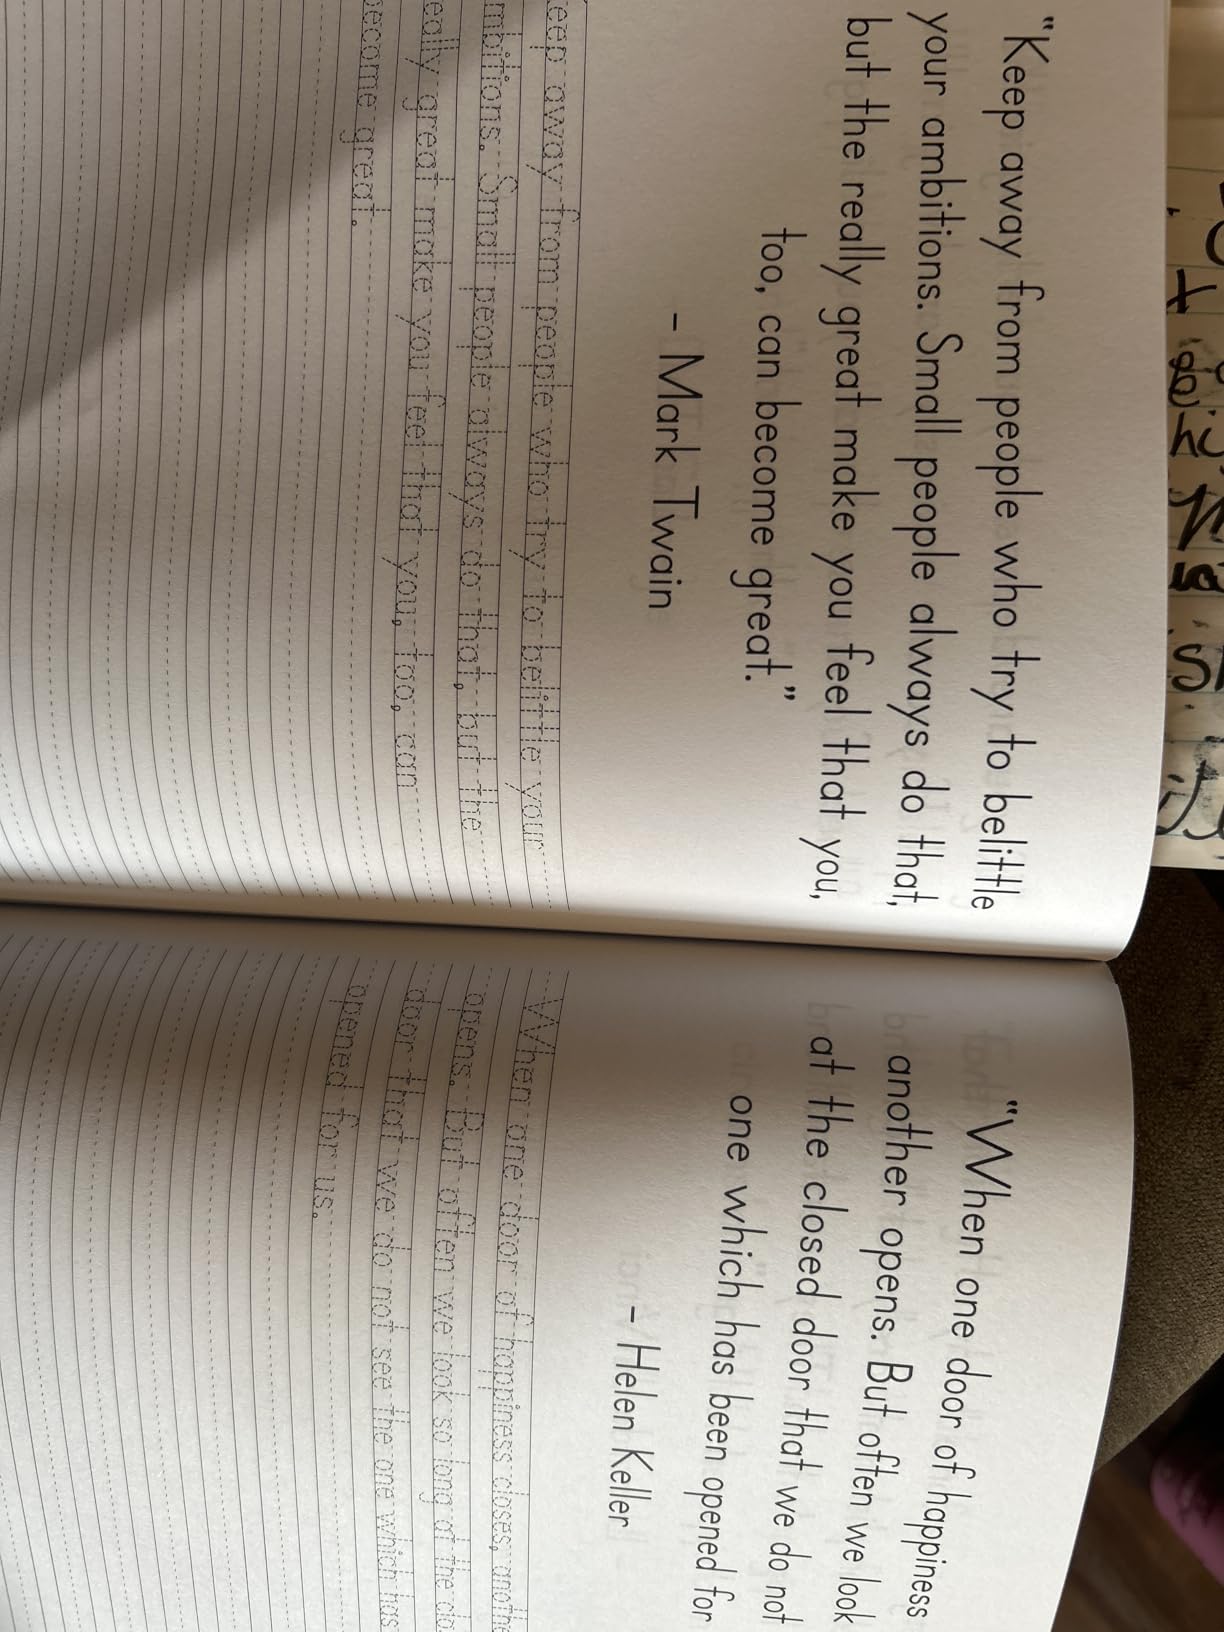 "Keep away from people who try to belittle
your ambitions. Small people always do that,
but the really great make you feel that you,
too, can become great."
- Mark Twain
eep away from people who try to belittle your
mbitions. Small people always do that, but the
eally great make you feel that you, too, can
ecome great.
"When one door of happiness
another opens. But often we look
at the closed door that we do not
one which has been opened for
- Helen Keller
When one door of happiness closes, anothe
opens. But often we look so long at the clo
door that we do not see the one which has
opened for us.